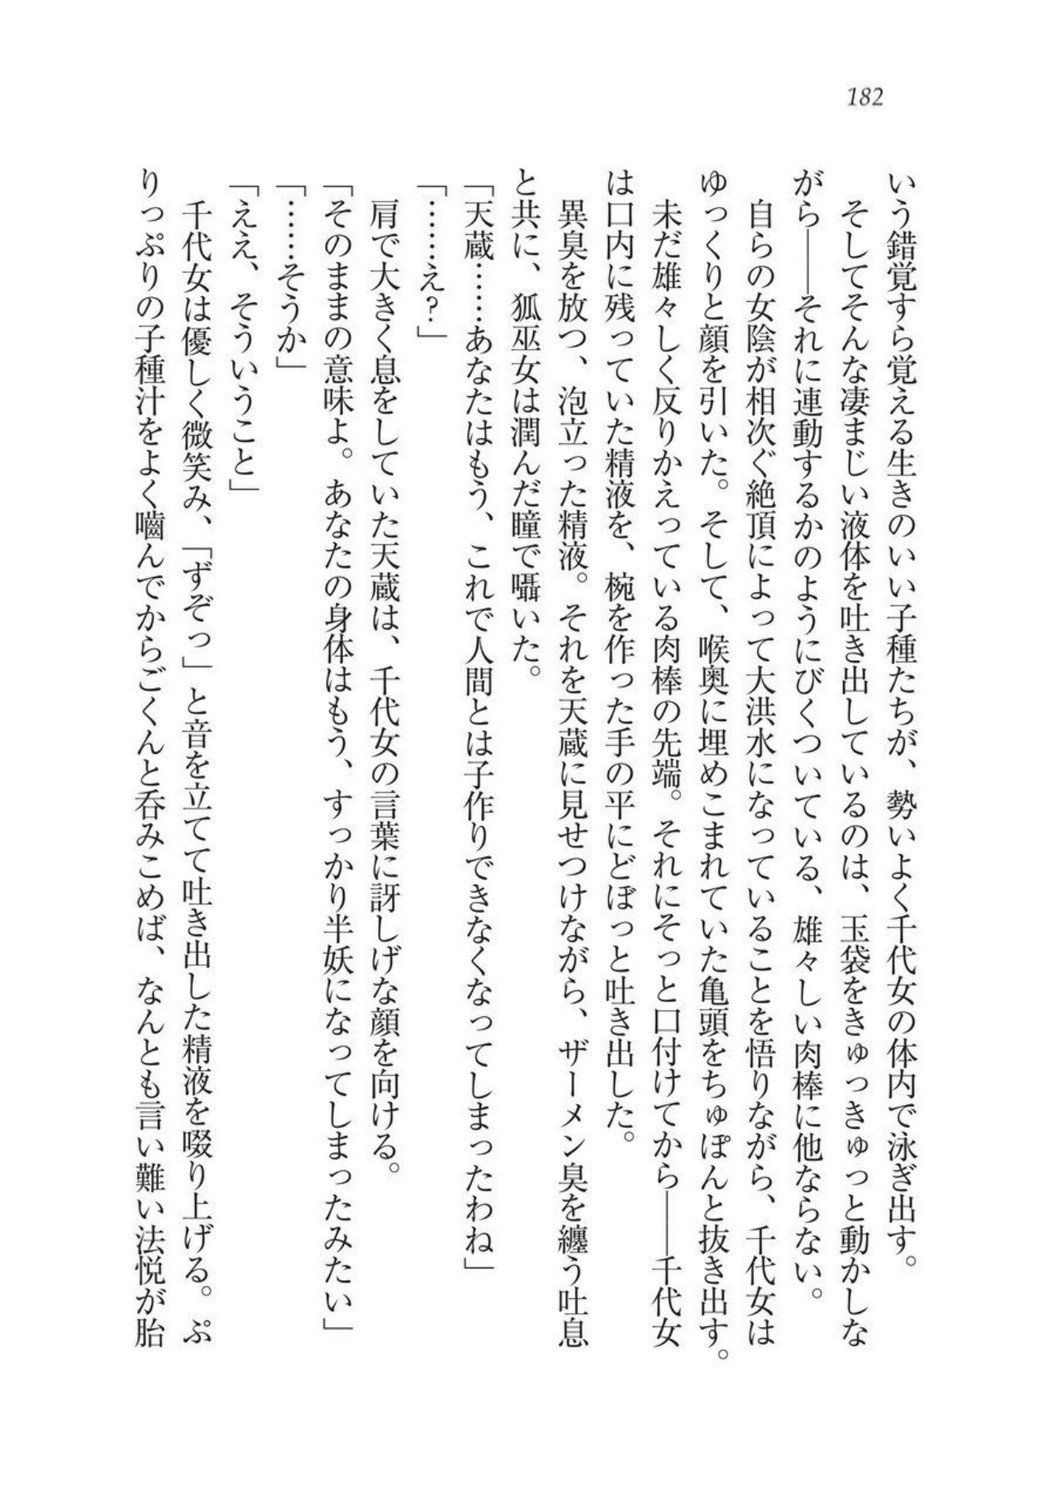 182
いう錯覚すら覚える生きのいい子種たちが、勢いよく千代女の体内で泳ぎ出す。
そしてそんな凄まじい液体を吐き出しているのは、玉袋をきゅっきゅっと動かしな
がら――それに連動するかのようにびくついている、雄々しい肉棒に他ならない。
自らの女陰が相次ぐ絶頂によって大洪水になっていることを悟りながら、千代女は
ゆっくりと顔を引いた。そして、喉奥に埋めこまれていた亀頭をちゅぽんと抜き出す。
未だ雄々しく反りかえっている肉棒の先端。それにそっと口付けてから――千代女
は口内に残っていた精液を、椀を作った手の平にどぼっと吐き出した。
異臭を放つ、泡立った精液。それを天蔵に見せつけながら、ザーメン臭を纏う吐息
と共に、狐巫女は潤んだ瞳で囁いた。
「天蔵……あなたはもう、これで人間とは子作りできなくなってしまったわね」
「……え?」
肩で大きく息をしていた天蔵は、千代女の言葉に訝しげな顔を向ける。
「そのままの意味よ。あなたの身体はもう、すっかり半妖になってしまったみたい」
「……そうか」
「ええ、そういうこと」
千代女は優しく微笑み、「ずぞっ」と音を立てて吐き出した精液を啜り上げる。ぷ
りっぷりの子種汁をよく嚙んでからごくんと呑みこめば、なんとも言い難い法悦が胎